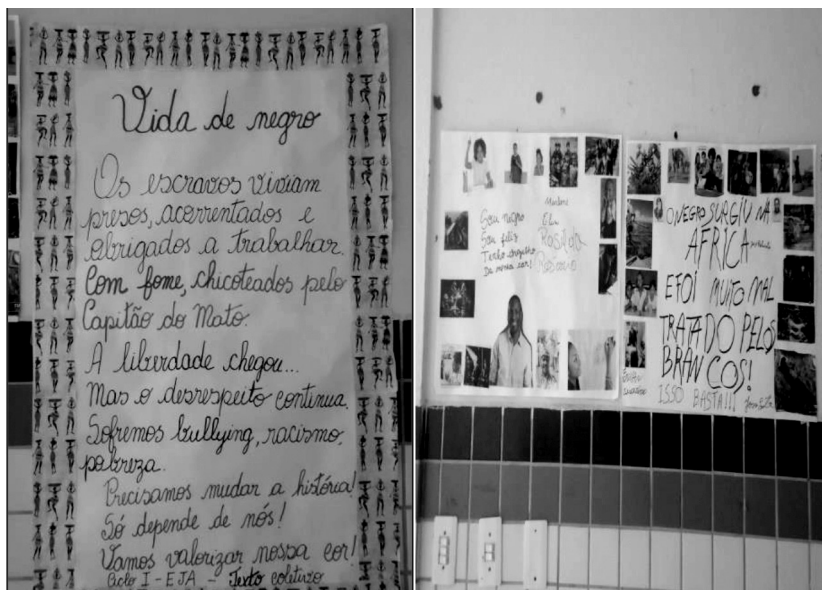 Vida de negro
Os escravos viviam
presos, acorrentados e
obrigados a trabalhar.
Com fome, chicoteados pelo
Capitão do Mato.
A liberdade chegou...
Mas o desrespeito continua.
Sofremos bullying, racismo,
pobreza.
Precisamos mudar a história!
Só depende de nós!
Vamos valorizar nossa cor!
Ciclo I - EJA - Texto coletivo
Sou negro
Sou feliz
Tenho orgulho
Da nossa cor!
Marlene
Elu
Rosilda
O NEGRO SURGIU NA
AFRICA
E FOI MUITO MAL
TRATADO PELOS
BRANCOS!
ISSO BASTA!!!